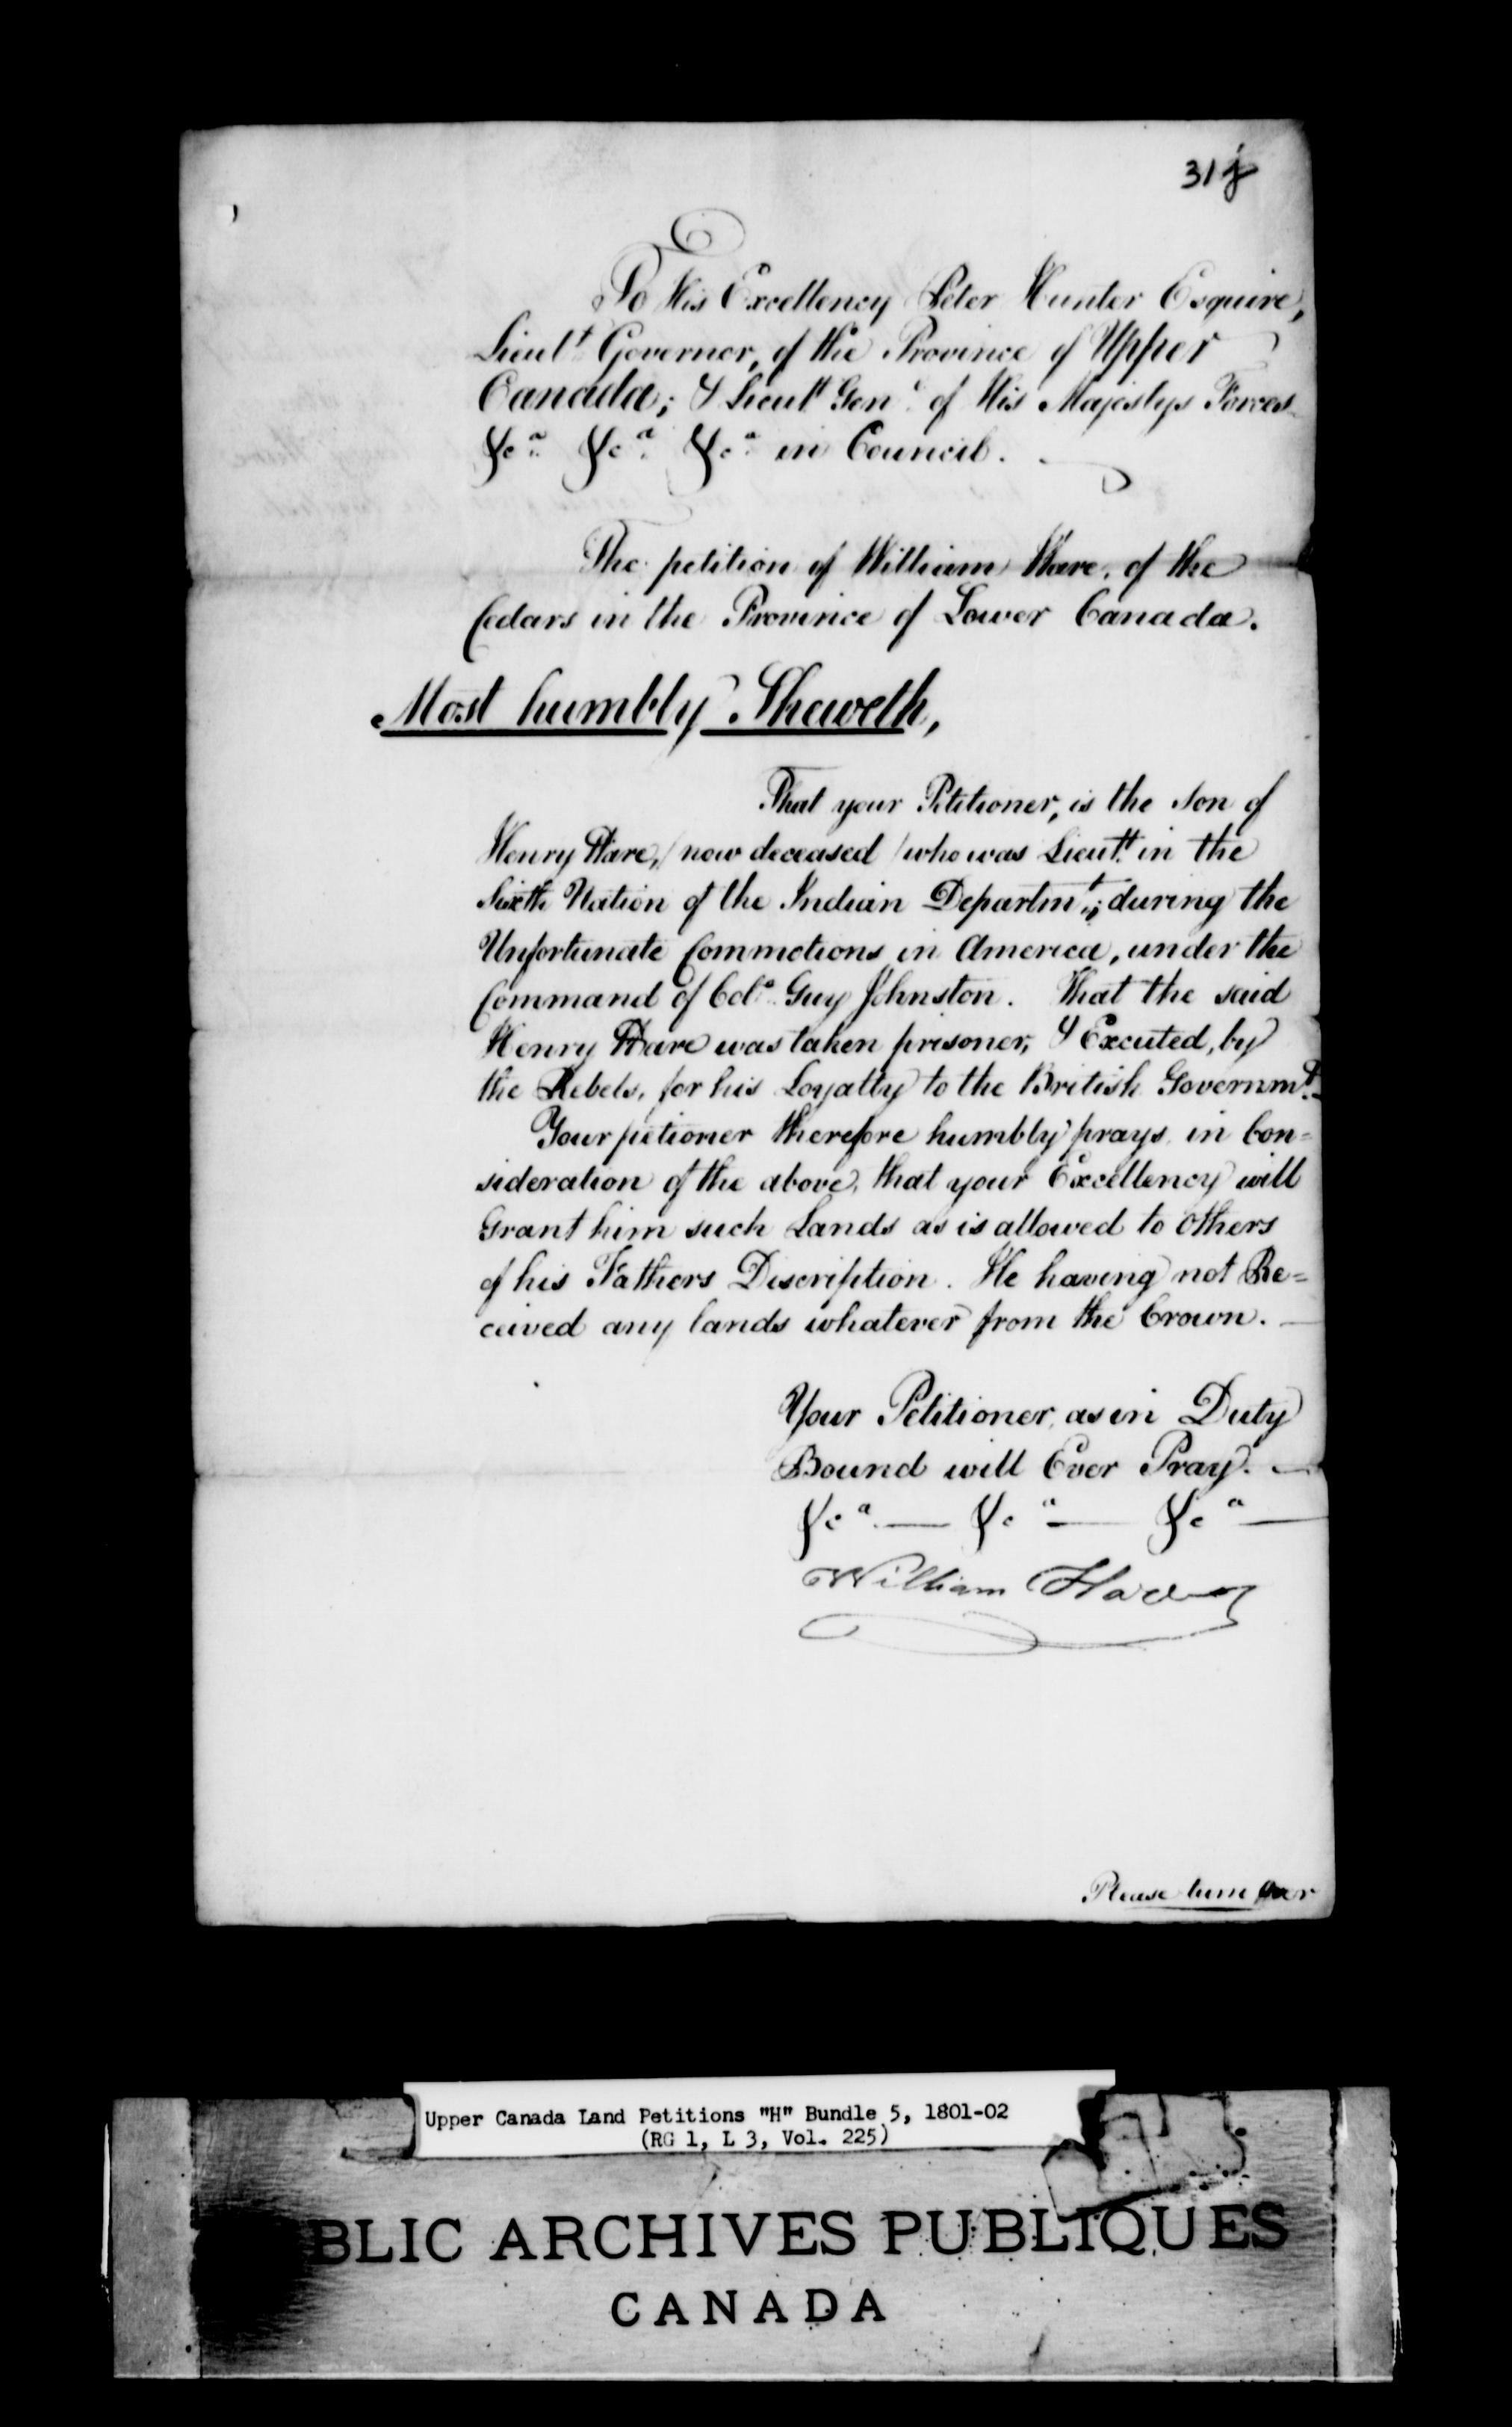 31j
To His Excellency Peter Hunter Esquire,
Lieut.t Governor, of the Province of Upper
Canada; & Lieut.t Gen.l of His Majestys Forces
&c.a &c.a &c.a in Council.
The petition of William Hare, of the
Cedars in the Province of Lower Canada.
Most humbly Sheweth,
That your Petitioner, is the son of
Henry Hare, / now deceased / who was Lieut.t in the
Sixth Nation of the Indian Departm.t; during the
Unfortunate Commotions in America, under the
Command of Col.o Guy Johnston. That the said
Henry Hare was taken prisoner, & Excuted, by
the Rebels, for his Loyalty to the British Governm.t
Your petioner therefore humbly prays in Con=
sideration of the above, that your Excellency will
Grant him such Lands as is allowed to others
of his Fathers Discription. He having not Re=
ceived any lands whatever from the Crown. —
Your Petitioner, as in Duty
Bound will Ever Pray. —
&c.a — &c.a — &c.a —
William Hare
Please turn over
Upper Canada Land Petitions "H" Bundle 5, 1801-02
(RG 1, L 3, Vol. 225)
BLIC ARCHIVES PUBLIQUES
CANADA